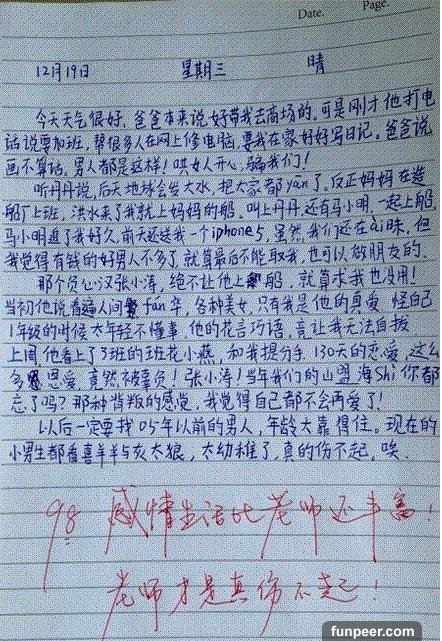 Date.
Page.
12月19日 星期三 晴
今天天气很好,爸爸本来说好带我去商场的,可是刚才他打电
话说要加班,帮很多人在网上修电脑,要我在家好好写日记。爸爸说
画不算话,男人都是这样!哄女人开心,骗我们!
听丹丹说,后天地球会发大水,把大家都yān了。反正妈妈在造
船厂上班,洪水来了我就上妈妈的船。叫上丹丹,还有马小明,一起上船,
马小明追了我好久,前天还送我一个iphone5,虽然我们还在ai昧,但
我觉得有钱的好男人不多了,就算最后不能取我,也可以做朋友的。
那个负心汉张小涛,绝不让他上船,就算求我也没用!
当初他说看遍人间fán华,各种美女,只有我是他的真爱,怪自己
1年级的时候太年轻不懂事,他的花言巧语,竟让我无法自拔
上周他看上了3班的班花小燕,和我提分手,130天的恋爱,这么
多恩爱,竟然被辜负!张小涛!当年我们的山盟海Shi你都
忘了吗?那种背叛的感觉,我觉得自己都不会再爱了!
以后一定要找05年以前的男人,年龄大靠得住。现在的
小男生都看喜羊羊与灰太狼,太幼稚了,真的伤不起,唉.
98 感情生活比老师还丰富!
老师才是真伤不起!
funpeer.com